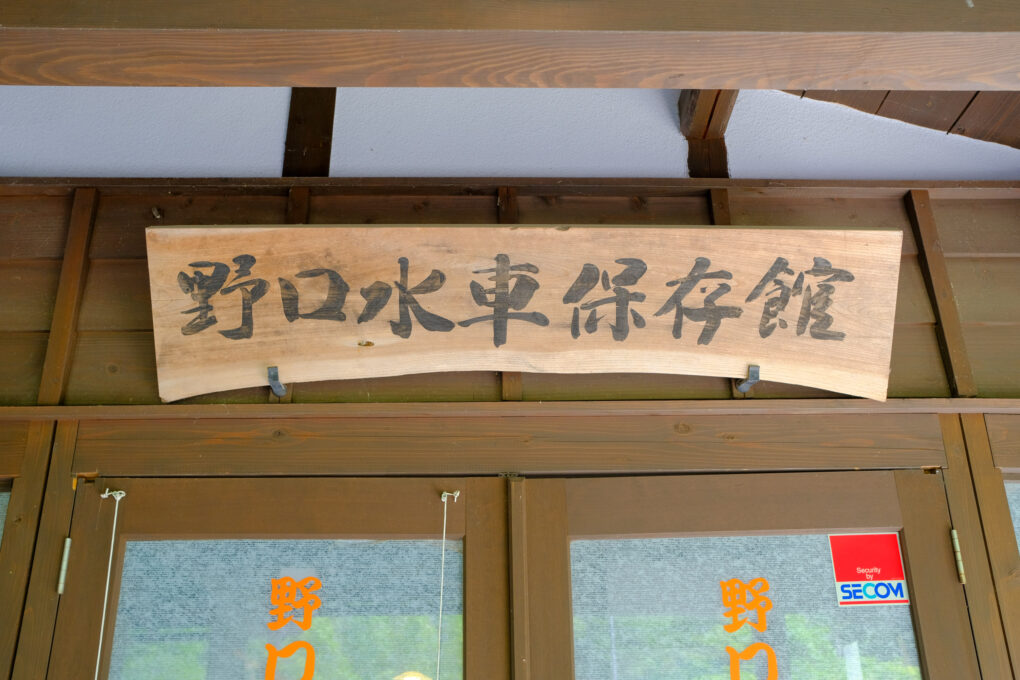 野口水車保存館
野口
野口
Security
by
SECOM